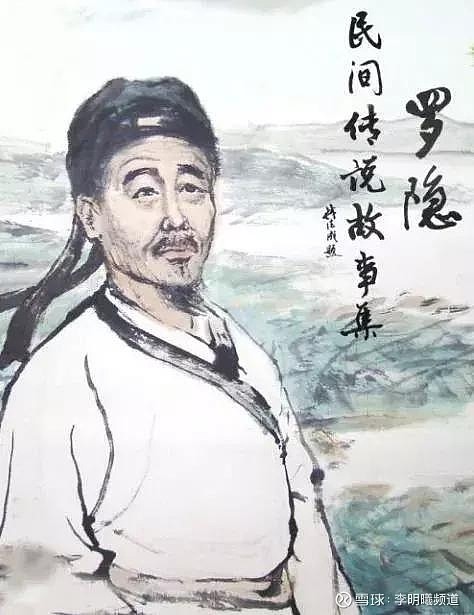 罗隐
民间传说故事集
雪球：李明曦频道